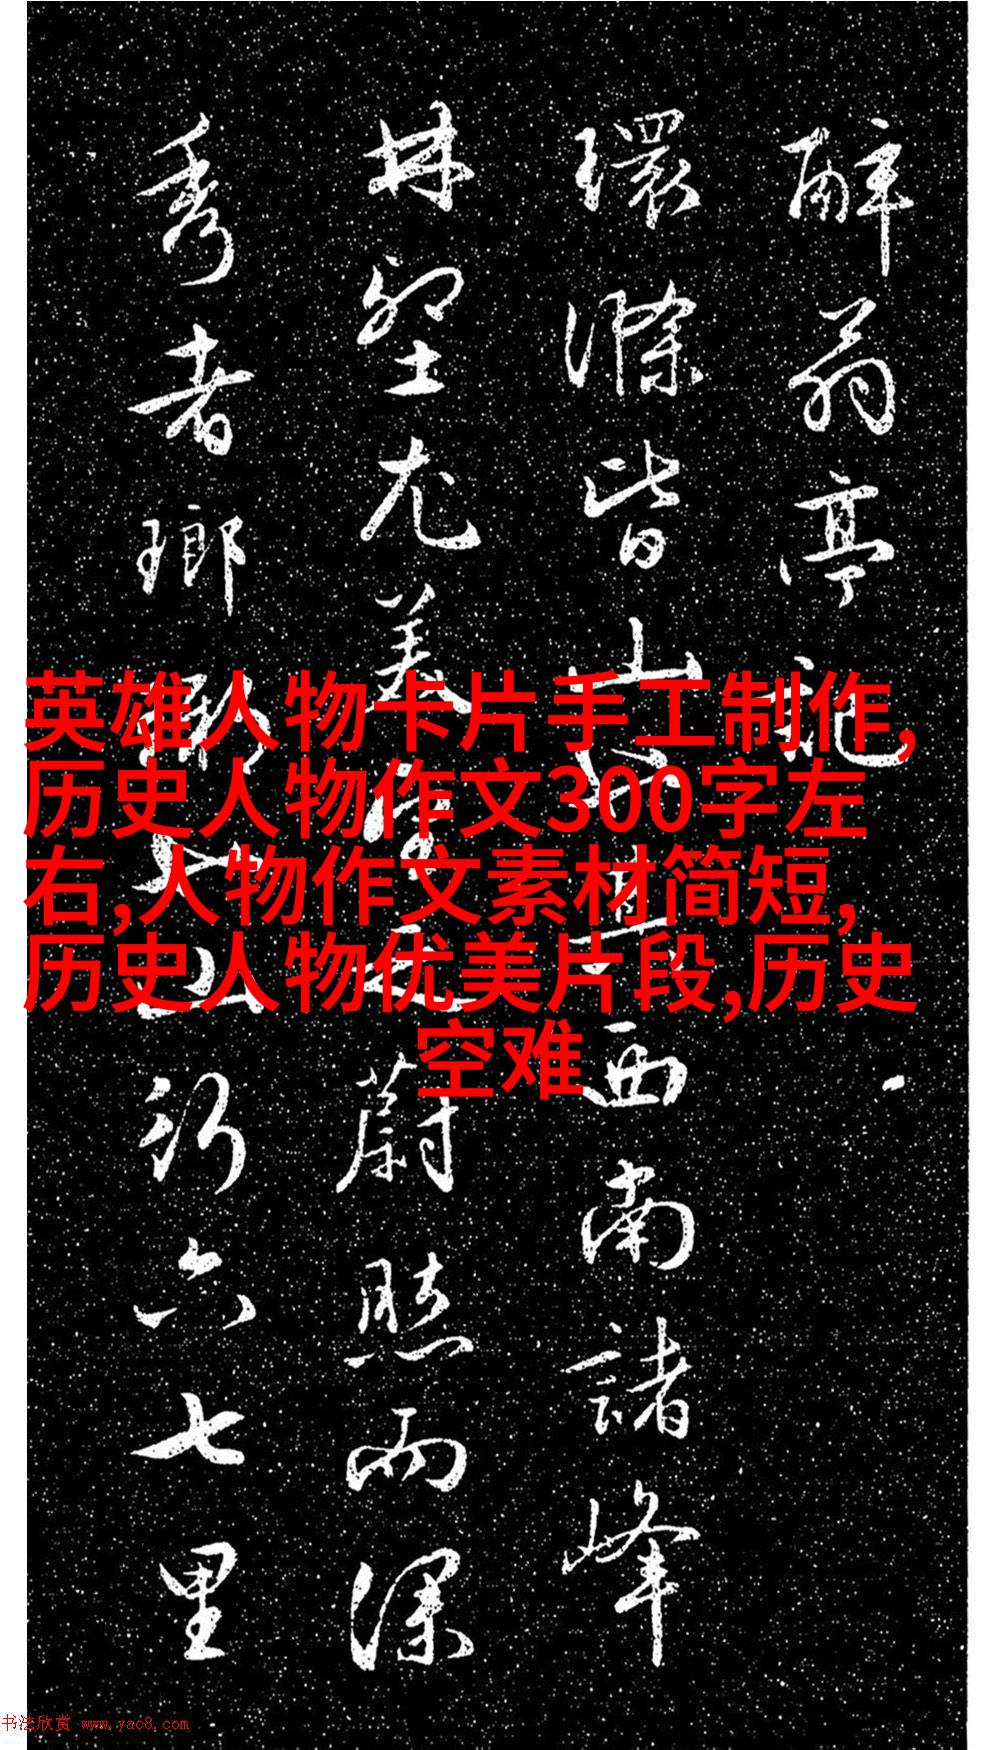 醉翁亭記
環滁皆山也其西南諸峰
林壑尤美望之蔚然而深
秀者瑯琊也山行六七里
英雄人物卡片手工制作,
历史人物作文300字左
右,人物作文素材简短,
历史人物优美片段,历史
空难
书法欣赏 www.yac8.com